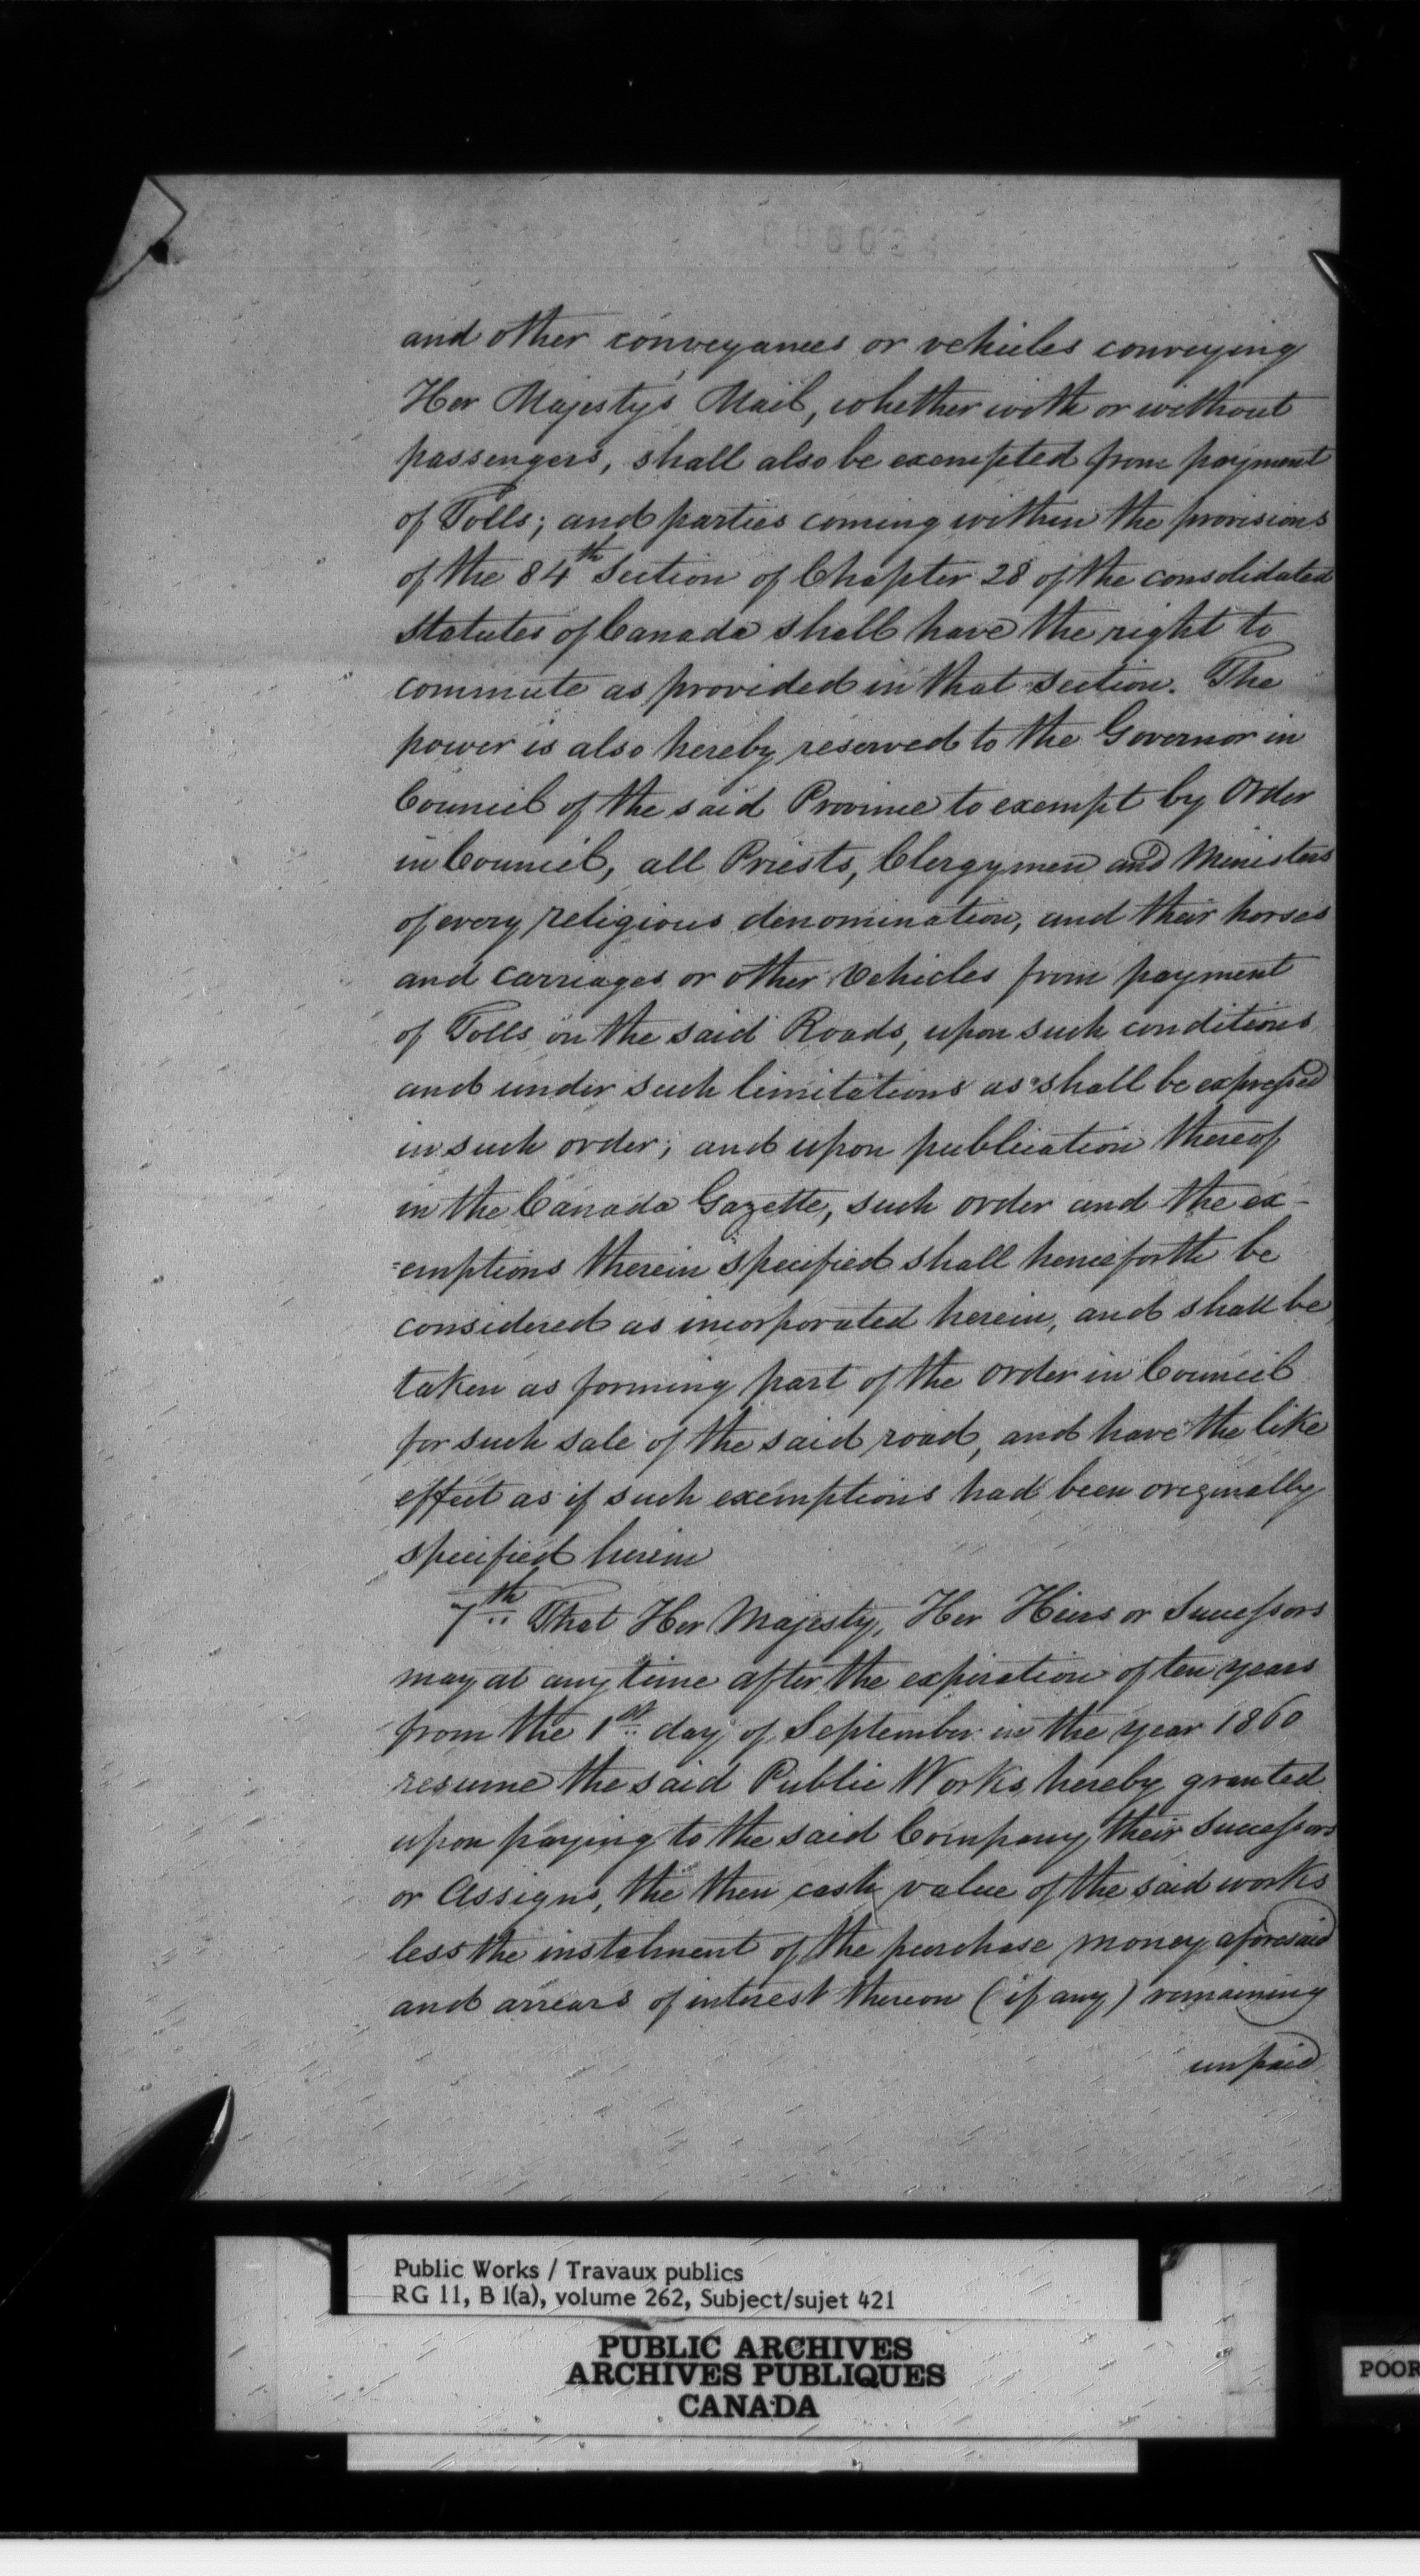 and other conveyances or vehicles conveying
Her Majesty's Mail, whether with or without
passengers, shall also be exempted from payment
of Tolls; and parties coming within the provisions
of the 84th Section of Chapter 28 of the consolidated
Statutes of Canada shall have the right to
commute as provided in that section. The
power is also hereby reserved to the Governor in
Council of the said Province to exempt by Order
in Council, all Priests, Clergymen and Ministers
of every religious denomination, and their horses
and carriages or other Vehicles from payment
of Tolls on the said Roads, upon such conditions
and under such limitations as shall be expressed
in such order; and upon publication thereof
in the Canada Gazette, such order and the ex-
=emptions therein specified shall henceforth be
considered as incorporated herein, and shall be
taken as forming part of the Order in Council
for such sale of the said road, and have the like
effect as if such exemptions had been originally
specified herein
7th That Her Majesty, Her Heirs or Successors
may at any time after the expiration of ten years
from the 1st day of September in the year 1860
resume the said Public Works hereby granted
upon paying to the said Company, their Successors
or Assigns, the then cash value of the said works
less the instalment of the purchase money aforesaid
and arrears of interest thereon (if any) remaining
unpaid
Public Works / Travaux publics
RG 11, B 1(a), volume 262, Subject/sujet 421
PUBLIC ARCHIVES
ARCHIVES PUBLIQUES
CANADA
POOR